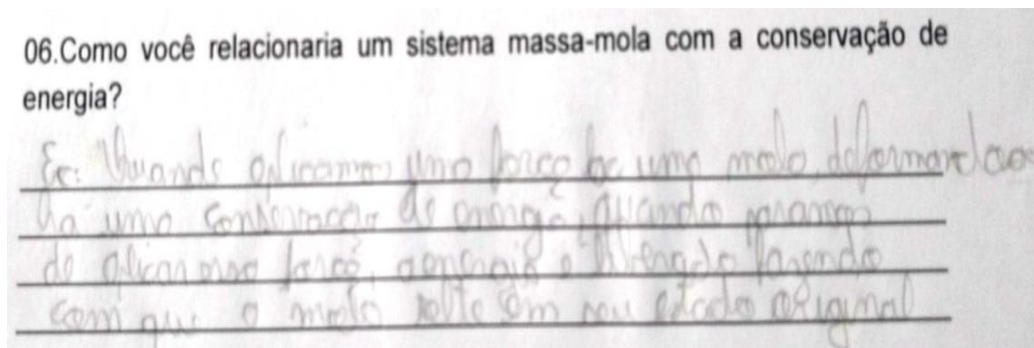 06.Como você relacionaria um sistema massa-mola com a conservação de
energia?
Ex: Quando aplicamos uma força em uma mola, deformando-a
há uma conservação de energia, quando paramos
de aplicar essa força, a energia é liberada fazendo
com que a mola volte em seu estado original